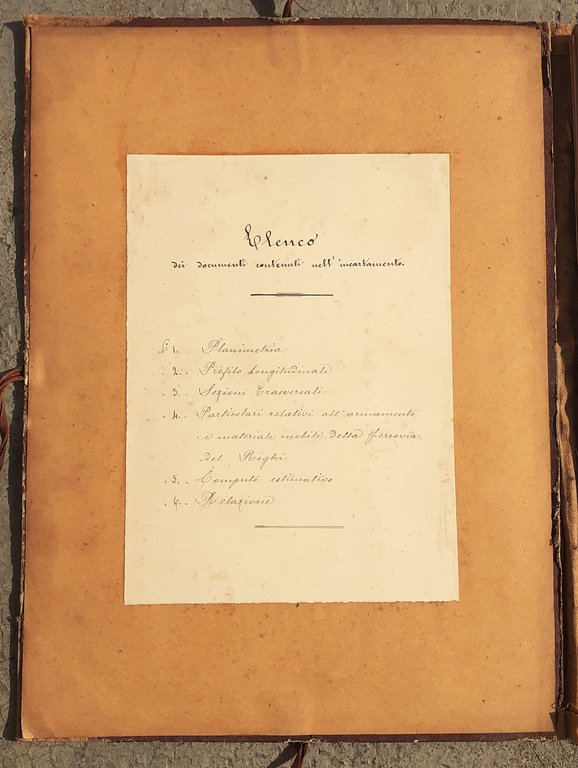 Elenco
dei documenti contenuti nell' incartamento.
N° 1. - Planimetria
" 2. - Profilo Longitudinale
" 3. - Sezioni Trasversali
" 4. - Particolari relativi all' armamento
e materiale mobile della ferrovia
del Righi
" 5. - Computo estimativo
" 6. - Relazione